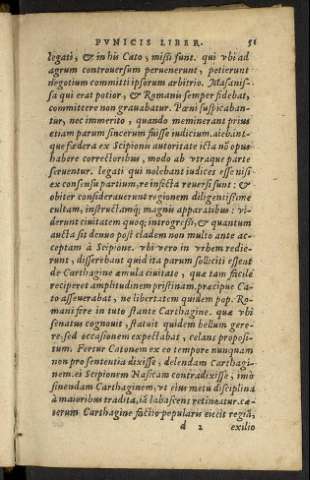 PVNICIS LIBER. 51
legati, & in his Cato, missi sunt. qui vbi ad
agrum controuersum peruenerunt, petierunt
negotium committi ipsorum arbitrio. Masanis-
sa qui erat potior, & Romanis semper fidebat,
committere non grauabatur. Pœni suspicaban-
tur, nec immerito, quando meminerant prius
etiam parum sincerum fuisse iudicium. aiebant-
que fœdera ex Scipionis autoritate icta nõ opus
habere correctoribus, modo ab vtraque parte
seruentur. legati qui nolebant iudices esse nisi
ex consensu partium, re infecta reuersi sunt: &
obiter considerauerunt regionem diligentissime
cultam, instructamq; magnis apparatibus: vi-
derunt ciuitatem quoq; introgressi, & quantum
aucta sit denuo post cladem non multo ante ac-
ceptam à Scipione. vbi vero in vrbem redie-
runt, disserebant quid ita parum solliciti esseat
de Carthagine æmula ciuitate, quæ tam facile
reciperet amplitudinem pristinam. præcipue Ca-
to asseuerabat, ne libertatem quidem pop. Ro-
mani fire in tuto stante Carthagine. quæ vbi
senatus cognouit, statuit quidem bellum gere-
re: sed occasionem expectabat, celans proposi-
tum. Fertur Catonem ex eo tempore nunquam
non pro sententia dixisse, delendam Carthagi-
nem. ei Scipionem Nasicam contradixisse, imò
sinendam Carthaginem, vt eius metu disciplina
à maioribus tradita, iã labascens retineatur. cæ-
terum Carthagine factio popularis eiecit regiã,
d 2 exilio